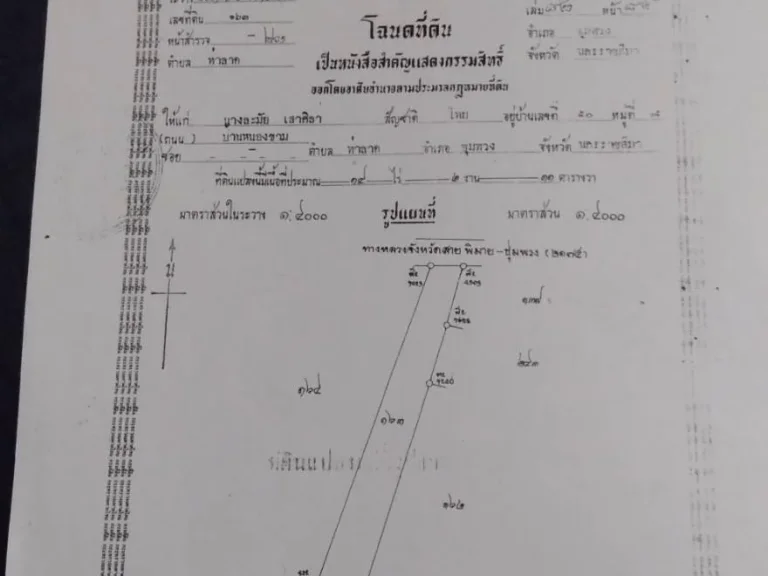 เลขที่ดิน ๑๖๓
หน้าสำรวจ
ตำบล ท่าลาด
โฉนดที่ดิน
เป็นหนังสือสำคัญแสดงกรรมสิทธิ์
ออกโดยอาศัยอำนาจตามประมวลกฎหมายที่ดิน
เล่ม หน้า
อำเภอ ชุมพวง
จังหวัด นครราชสีมา
ให้แก่ นางละมัย เลาศิลา สัญชาติ ไทย อยู่บ้านเลขที่ ๕๐ หมู่ที่ ๘
(ถนน) บ้านหนองขาม
ซอย - - - ตำบล ท่าลาด อำเภอ ชุมพวง จังหวัด นครราชสีมา
ที่ดินแปลงนี้มีเนื้อที่ประมาณ ๑๘ ไร่ ๒ งาน ๑๑ ตารางวา
มาตราส่วนในระวาง ๑:๔๐๐๐ รูปแผนที่ มาตราส่วน ๑:๔๐๐๐
ทางหลวงจังหวัดสาย พิมาย-ชุมพวง (๒๑๗๕)
น
๑๓๗
๒๔๑
๑๖๔
๑๖๓
๑๖๒